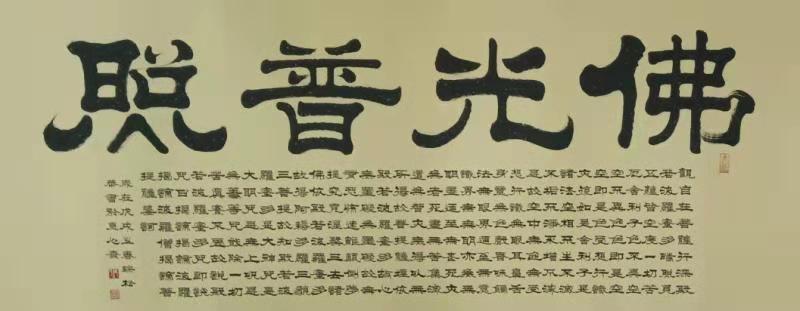 佛光普照
觀自在菩薩行深般
若波羅蜜多時照見
五蘊皆空度一切苦
厄舍利子色不異空
空不異色色即是空
空即是色受想行識
亦復如是舍利子是
諸法空相不生不滅
不垢不淨不增不減
是故空中無色無受
想行識無眼耳鼻舌
身意無色聲香味觸
法無眼界乃至無意
識界無無明亦無無
明盡乃至無老死亦
無老死盡無苦集滅
道無智亦無得以無
所得故菩提薩埵依
般若波羅蜜多故心
無罣礙無罣礙故無
有恐怖遠離顛倒夢
想究竟涅槃三世諸
佛依般若波羅蜜多
故得阿耨多羅三藐
三菩提故知般若波
羅蜜多是大神咒是
大明咒是無上咒是
無等等咒能除一切
苦真實不虛故說般
若波羅蜜多咒即說
咒曰揭諦揭諦波羅
揭諦波羅僧揭諦菩
提薩婆訶
歲在戊戌立春
恭書於